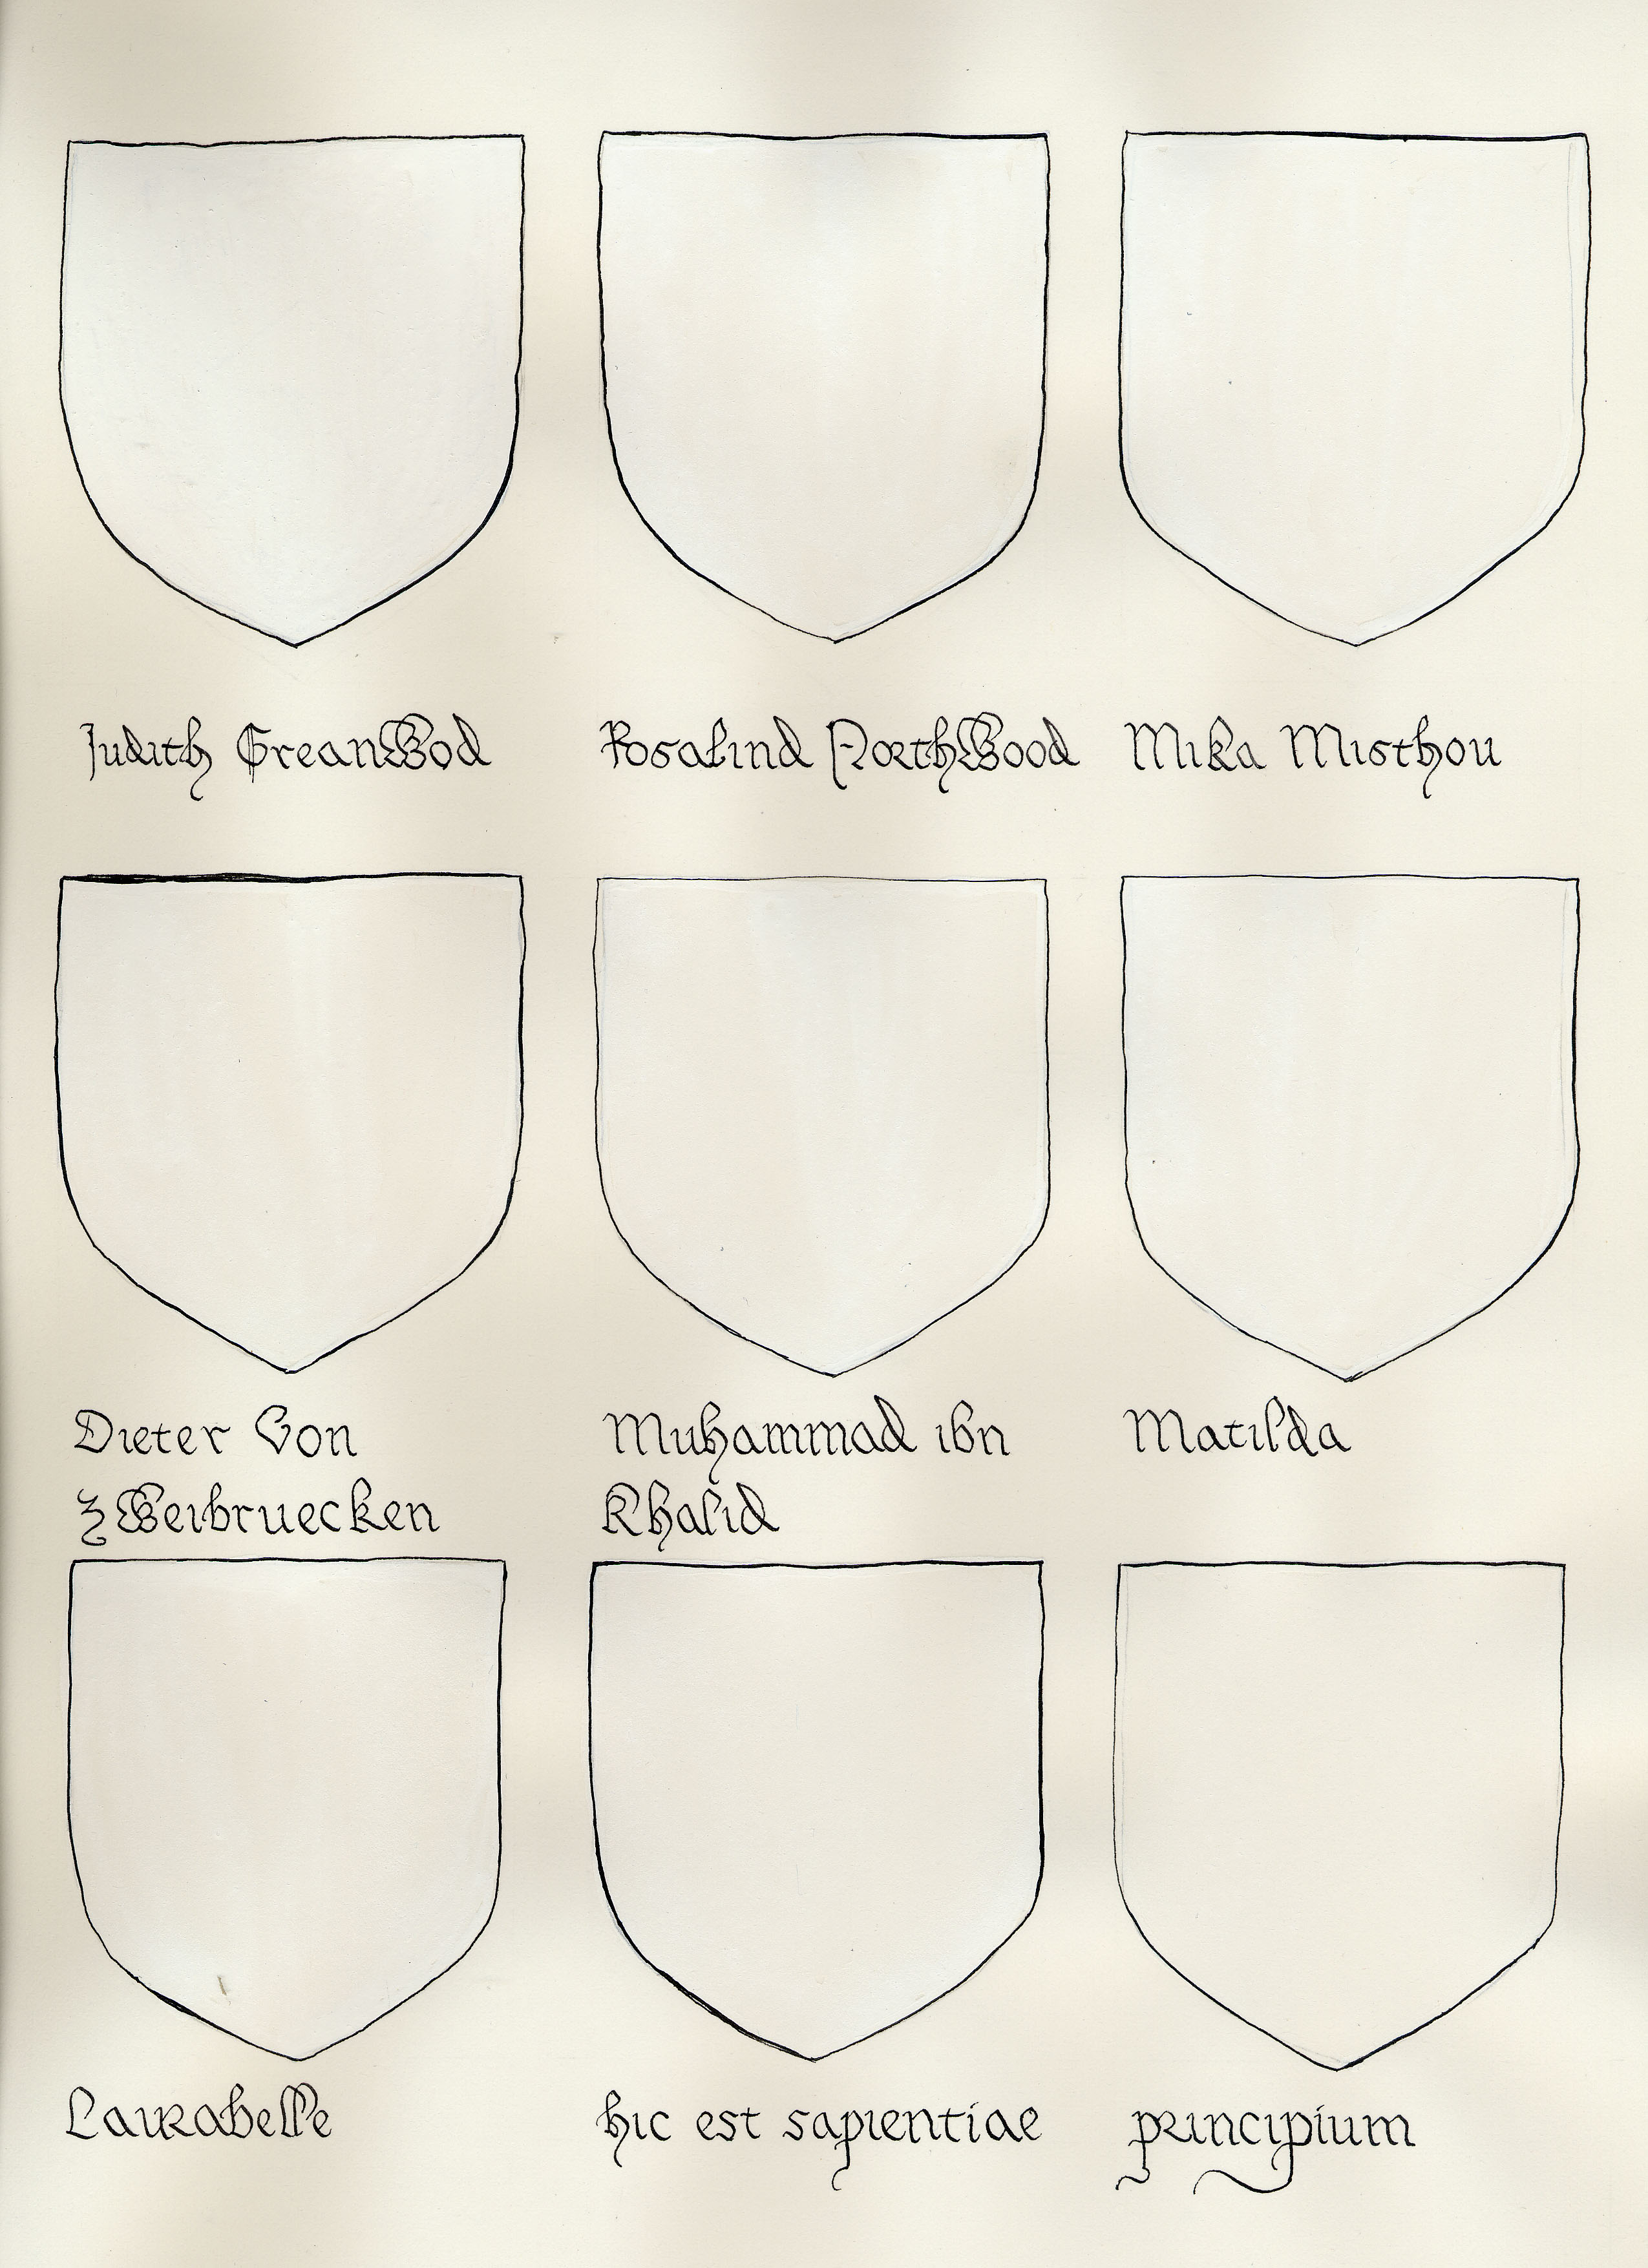 Judith GreanWod
Rosalind NorthWood
Mika Misthou
Dieter Von
ZWeibruecken
Muhammad ibn
Khalid
Matilda
Laurabelle
hic est sapientiae
principium